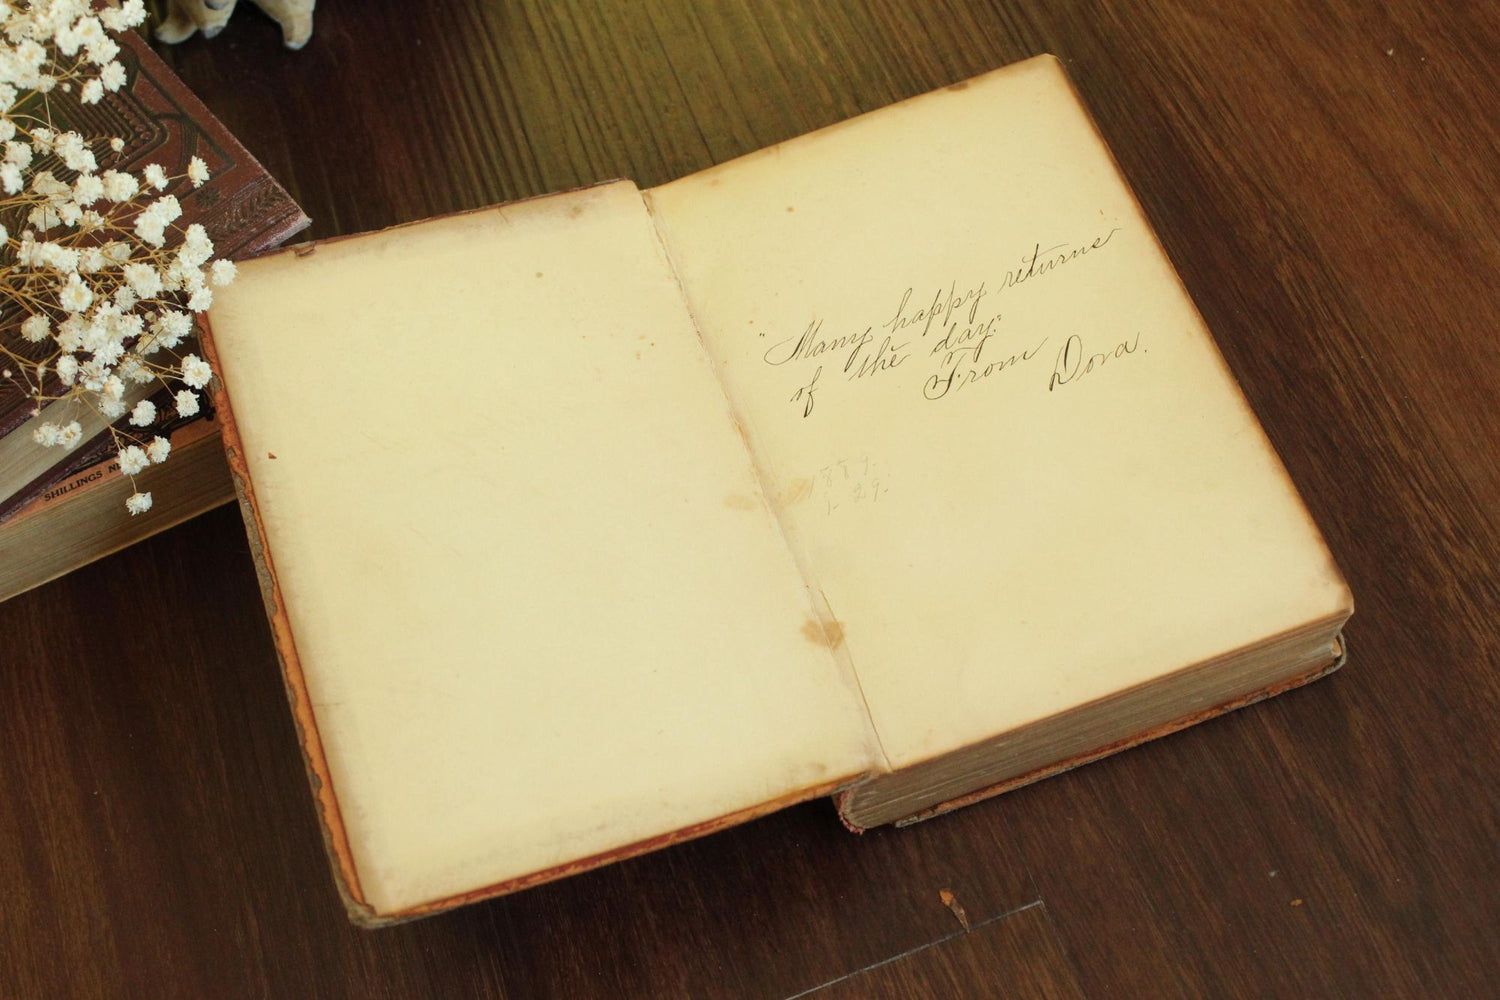 "Many happy returns
of the day."
From Dora.
1889.
1. 29.
SHILLINGS